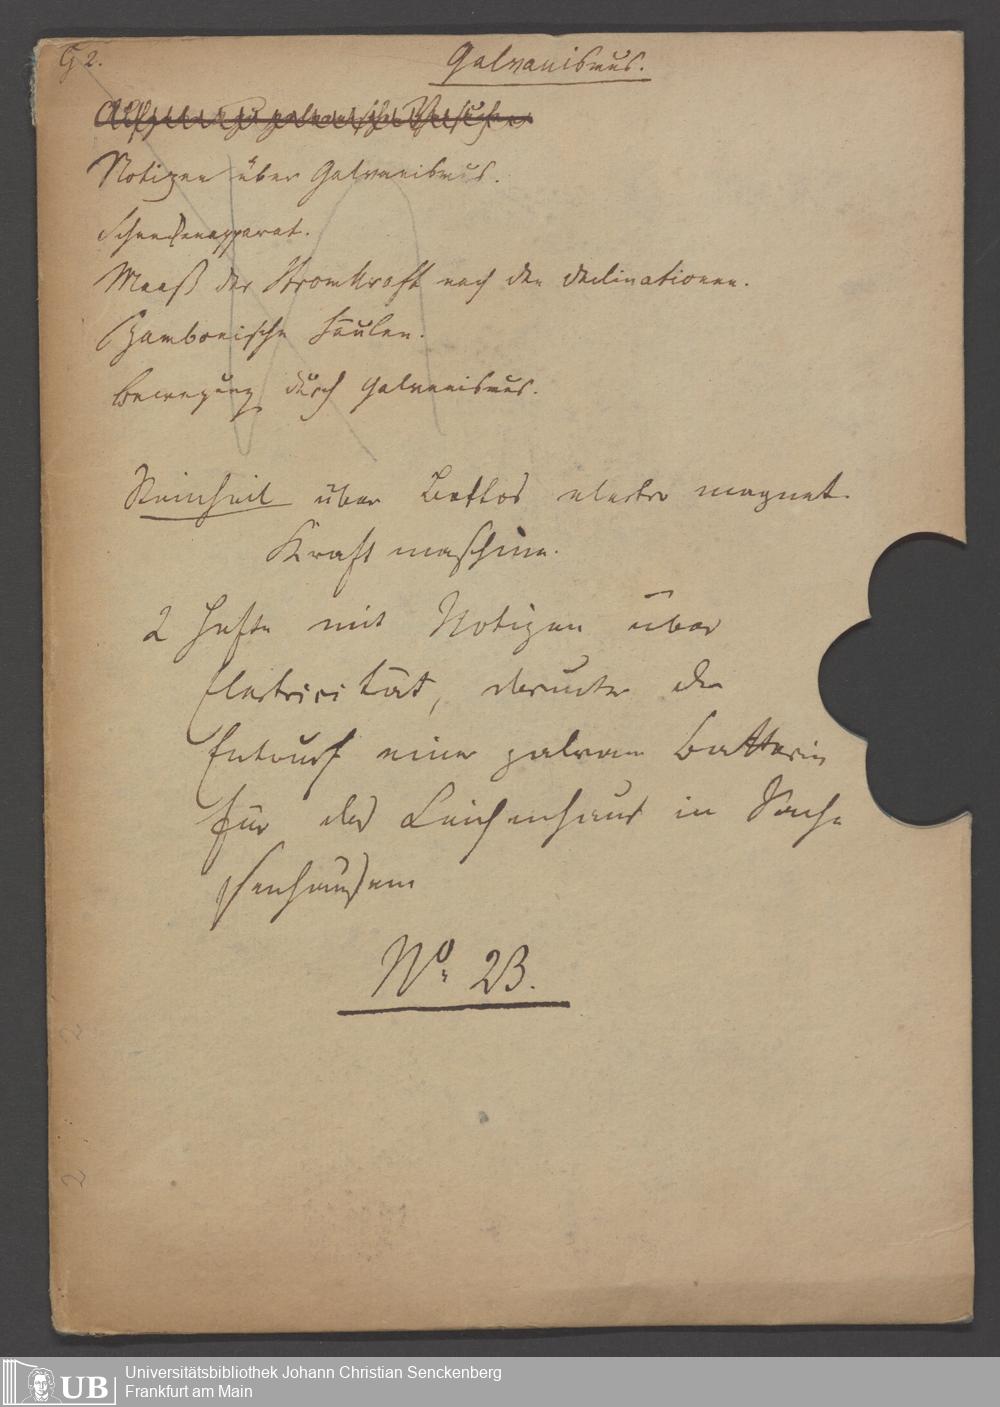 G 2.
Galvanismus.
Notizen über Galvanismus.
Maaß der Stromkraft nach den Declinationen.
Zambonische Säulen.
Bewegung durch Galvanismus.
Steinheil über Bottos electro magnet.
Kraft maschine.
2 Hefte mit Notizen über
Electricität, darunter der
Entwurf einer galvan Batterie
für das Leichenhaus in Sach
senhausen
No. 23.
2
2
UB
Universitätsbibliothek Johann Christian Senckenberg
Frankfurt am Main